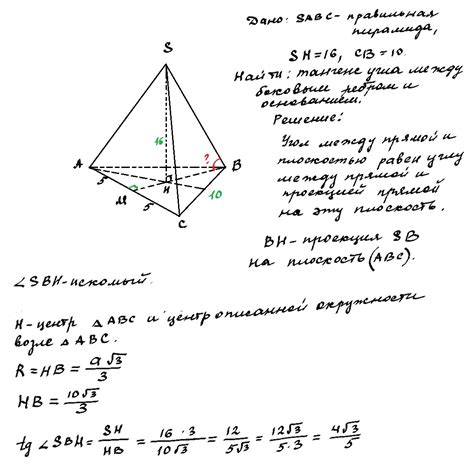 Дано: SABC- правильная
пирамида,
SH=16, CB=10.
Найти: тангенс угла между
боковым ребром и
основанием.
Решение:
Угол между прямой и
плоскостью равен углу
между прямой и
проекцией прямой
на эту плоскость.
BH- проекция SB
на плоскость (ABC).
S
16
A
?
B
5
H
M
10
5
C
∠SBH-искомый.
H-центр △ABC и центр описанной окружности
возле △ABC.
R = HB = a√3/3
HB = 10√3/3
tg ∠SBH = SH/HB = 16·3/10√3 = 12/5√3 = 12√3/5·3 = 4√3/5